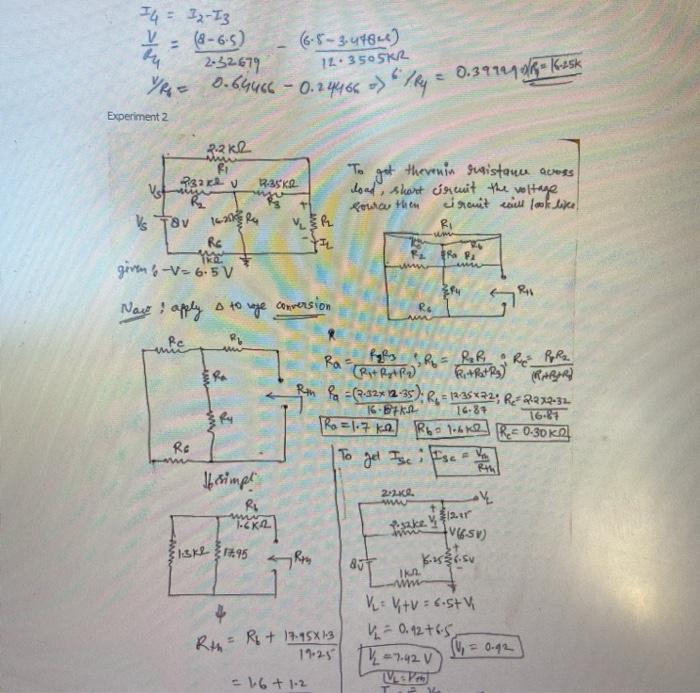 I4 = I2-I3
V/R4 = (8-6.5)/2.32679 - (6.5-3.4786)/12.3505KΩ
V/R4 = 0.64466 - 0.24466 => 6.5/R4 = 0.39999
R4=16.25k
Experiment 2
2.2 KΩ
R1
Vs 2.32 KΩ V 12.35KΩ
R2 R3
Vs 8V R4 VL RL
IL
R6
1KΩ
given : -V= 6.5 V
To get thevenin resistance across
load, short circuit the voltage
source then circuit will look like
R1
Rc Rb
R2 Ra R3
R4 Rth
R6
Now ; apply Δ to wye conversion
Rc Rb
Ra
Rth
R4
R6
Ra = R2R3/(R1+R2+R3) ; Rb = R3R1/(R1+R2+R3) ; Rc = R1R2/(R1+R2+R3)
Ra = (2.32x12.35)/16.87KΩ ; Rb = 12.35x2.2/16.87 ; Rc = 2.2x2.32/16.87
Ra = 1.7 KΩ Rb = 1.6 KΩ Rc = 0.30 KΩ
⇓ simpl
Rb
1.6KΩ
1.3KΩ 17.95 Rth
Rth = Rb + 17.95x1.3/19.25
= 1.6 + 1.2
To get Isc ; Isc = Vth/Rth
2.2KΩ VL
2.32KΩ V1 12.35
V(6.5V)
8V 16.25 6.5V
1KΩ
VL = V1+V = 6.5+V1
VL = 0.92+6.5
V1 = 0.92
VL = 7.42 V
VL = Vth